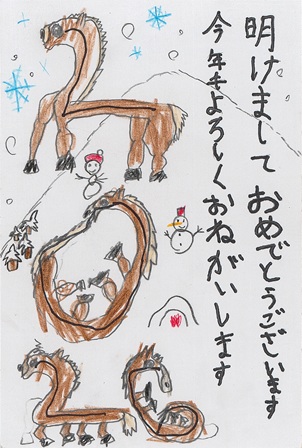 明けまして おめでとうございます
今年もよろしくおねがいします